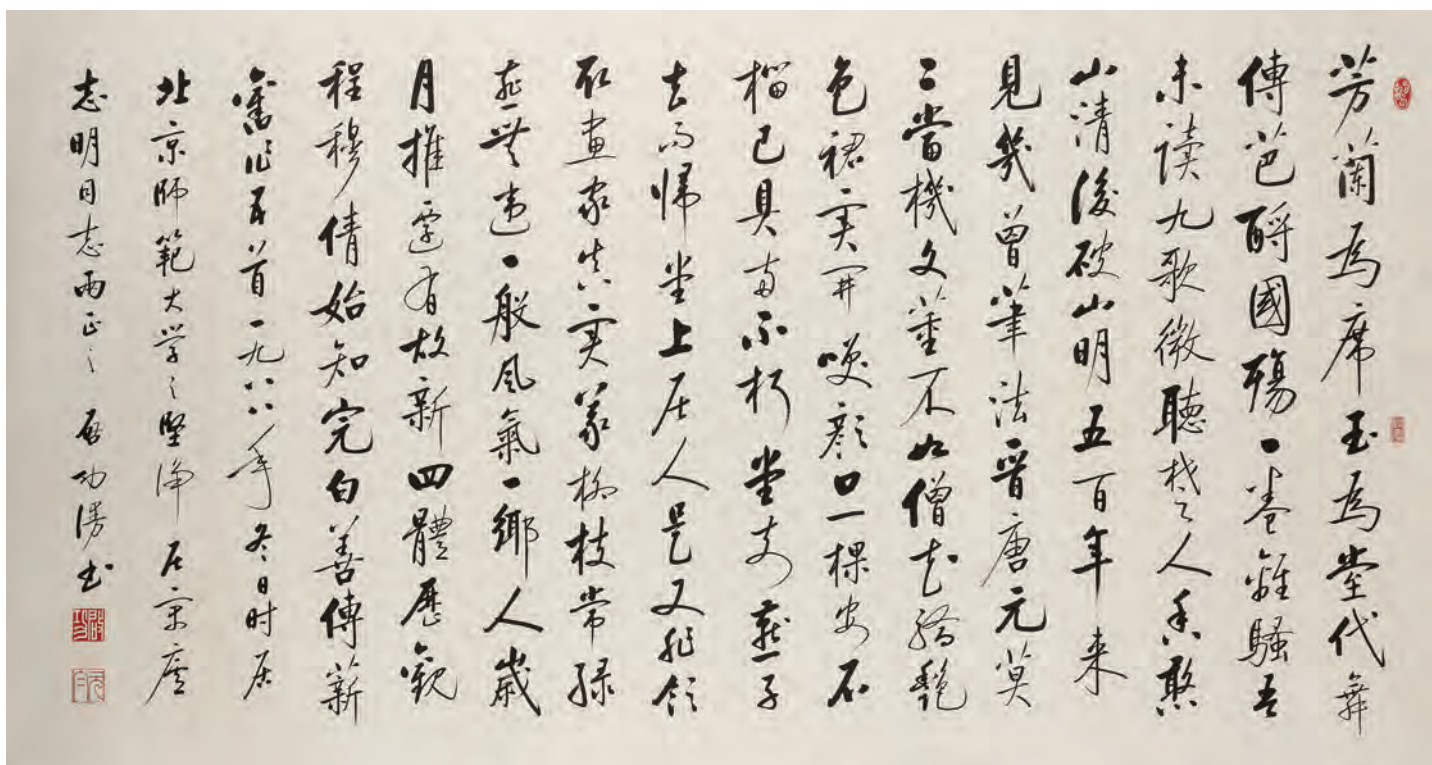 芳蘭為席玉為堂代舞
傳芭酹國殤一卷離騷吾
未读九歌微聽楚人香憨
山清後破山明五百年来
見幾曾筆法晋唐元莫
二當機文董不如僧花嬌艷
色裙实開咲颜口一棵安石
榴已具两不朽堂前燕子
去而歸堂上居人是又非領
取畫家真实義柳枝常緑
燕無違一般風氣一鄉人歲
月推遷有故新四體歷觀
程穆倩始知完白善傳薪
舊作五首一九八八年冬日时居
北京師範大学之堅净居廬
志明同志兩正之 启功漫书
啟功
元白